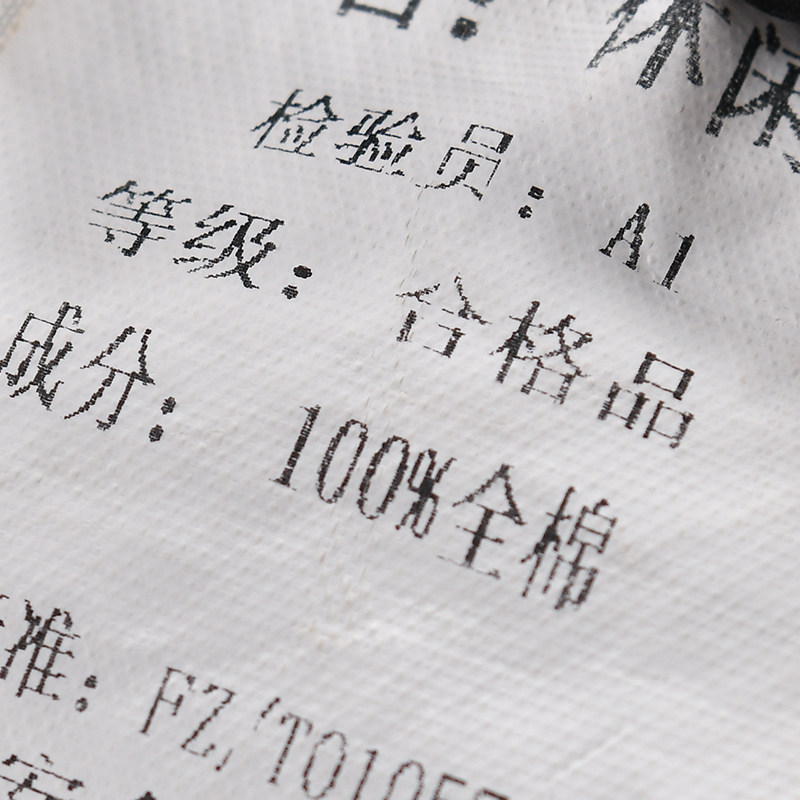 休闲
检验员: A1
等级: 合格品
成分: 100%全棉
准: FZ/T0105
安